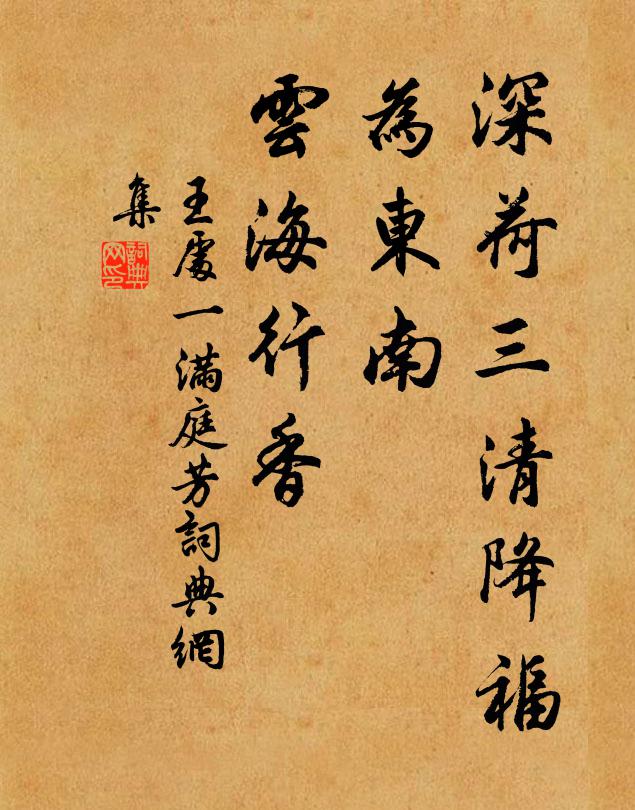 深荷三清降福
為東南
雲海行香
王處一滿庭芳詞典網
集
詞典
网印